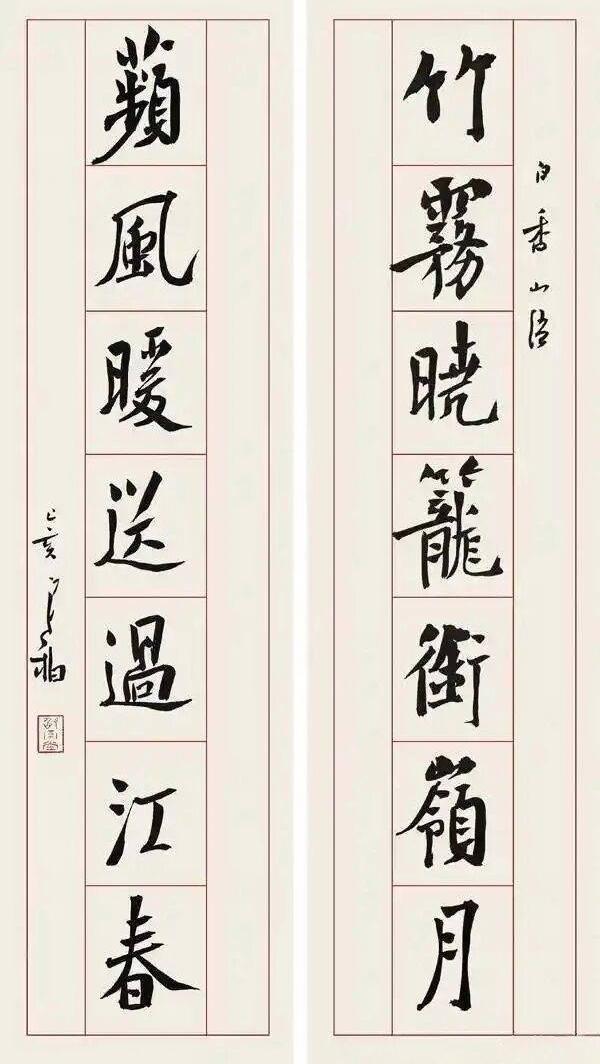 白香山語
竹霧曉籠銜嶺月
蘋風暖送過江春
己亥